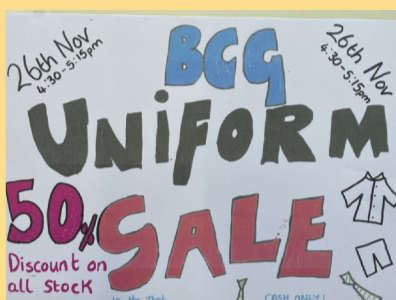 26th Nov
4:30-5:15pm
BCG
26th Nov
4:30-5:15pm
UNiFORM
50%
SALE
Discount on
all Stock
CASH ONLY!